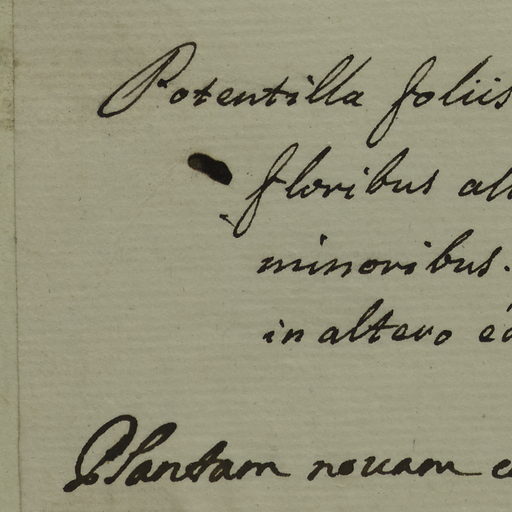 Potentilla foliis
floribus alb
minoribus.
in altero
Plantam novam